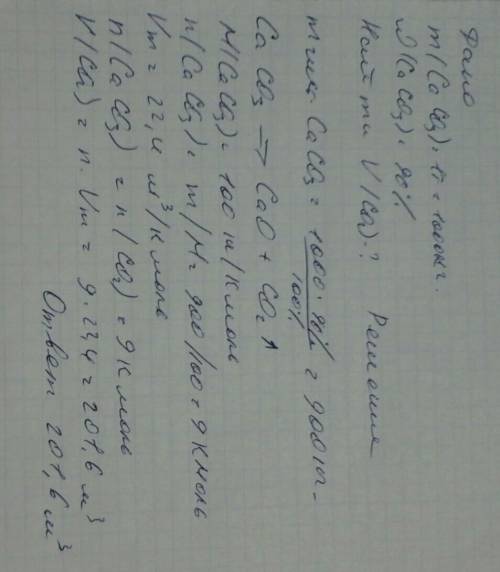 Дано
m(CaCO3) = 1т = 1000кг.
ω(CaCO3) = 90%
Найти V(CO2)-?
Решение
m чист. CaCO3 = 1000 · 90% / 100% = 900 кг.
CaCO3 → CaO + CO2↑
M(CaCO3) = 100 кг/кмоль
n(CaCO3) = m/M = 900/100 = 9 кмоль
Vm = 22,4 м³/кмоль
n(CaCO3) = n(CO2) = 9 кмоль
V(CO2) = n · Vm = 9 · 23,4 = 201,6 м³
Ответ 201,6 м³